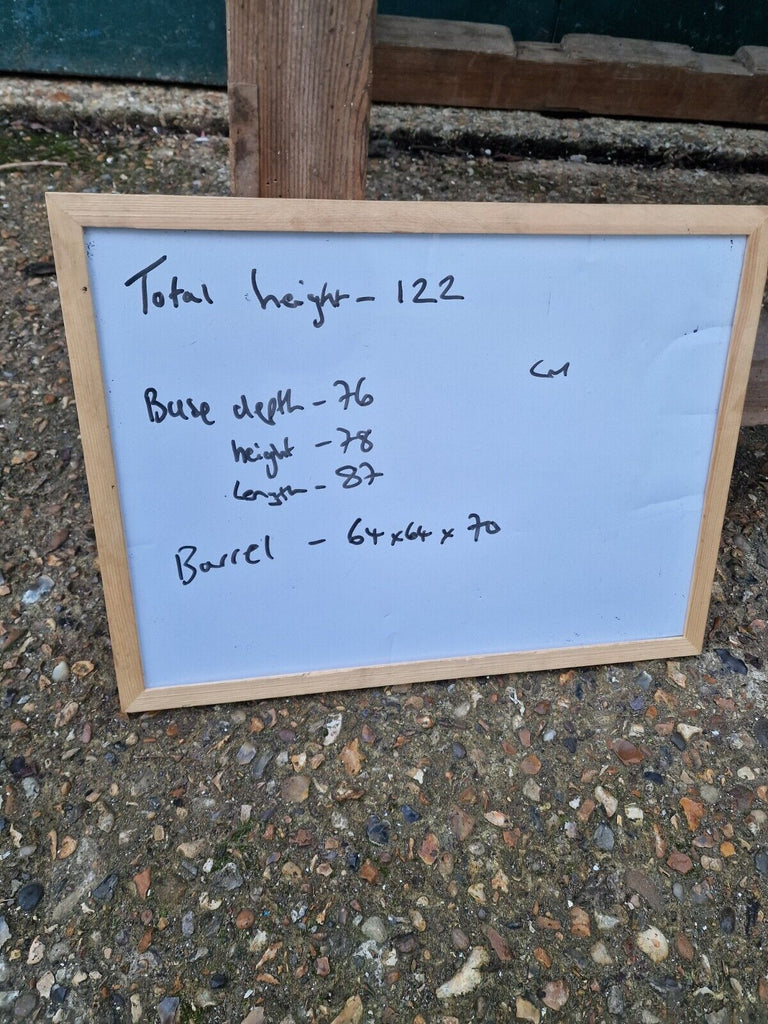 Total height - 122
cm
Base depth - 76
height - 78
length - 87
Barrel - 64 x 64 x 70